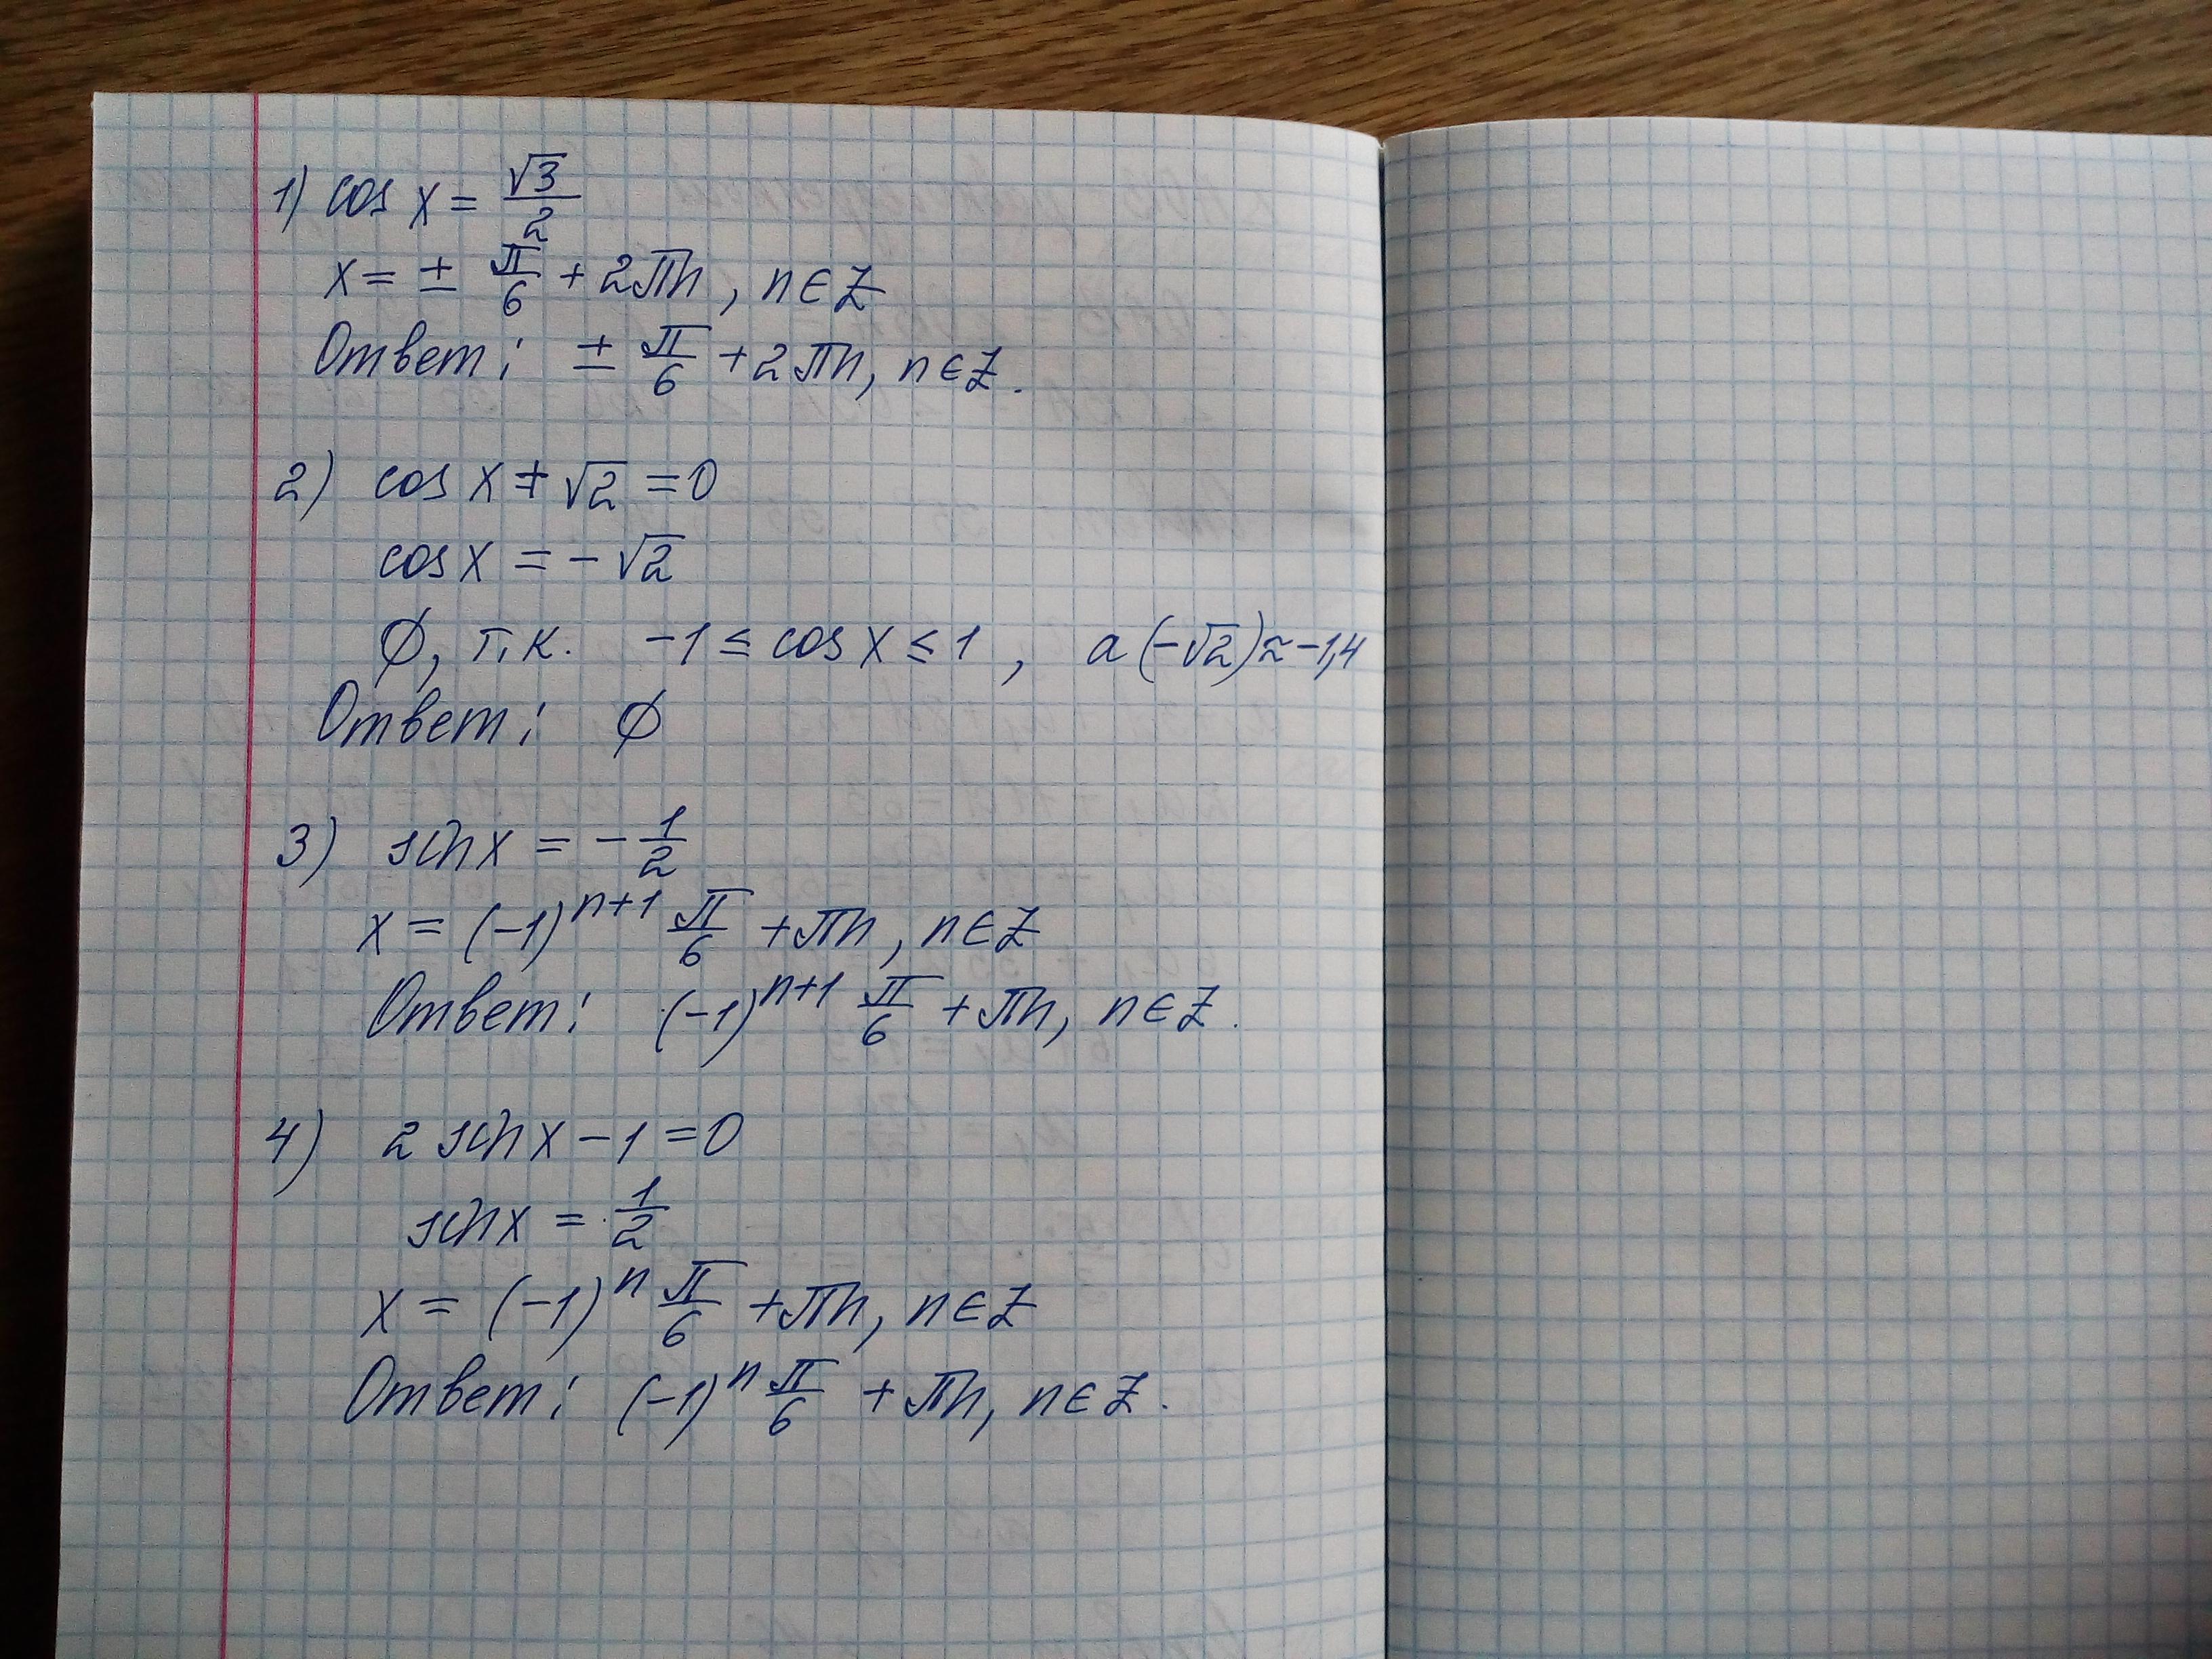 1) cos x = √3/2
x = ± π/6 + 2πn, n∈Z
Ответ: ± π/6 + 2πn, n∈Z.
2) cos x + √2 = 0
cos x = -√2
∅, т.к. -1 ≤ cos x ≤ 1, а (-√2) ≈ -1,4
Ответ: ∅
3) sin x = - 1/2
x = (-1)^(n+1) π/6 + πn, n∈Z
Ответ: (-1)^(n+1) π/6 + πn, n∈Z.
4) 2 sin x - 1 = 0
sin x = 1/2
x = (-1)^n π/6 + πn, n∈Z
Ответ: (-1)^n π/6 + πn, n∈Z.